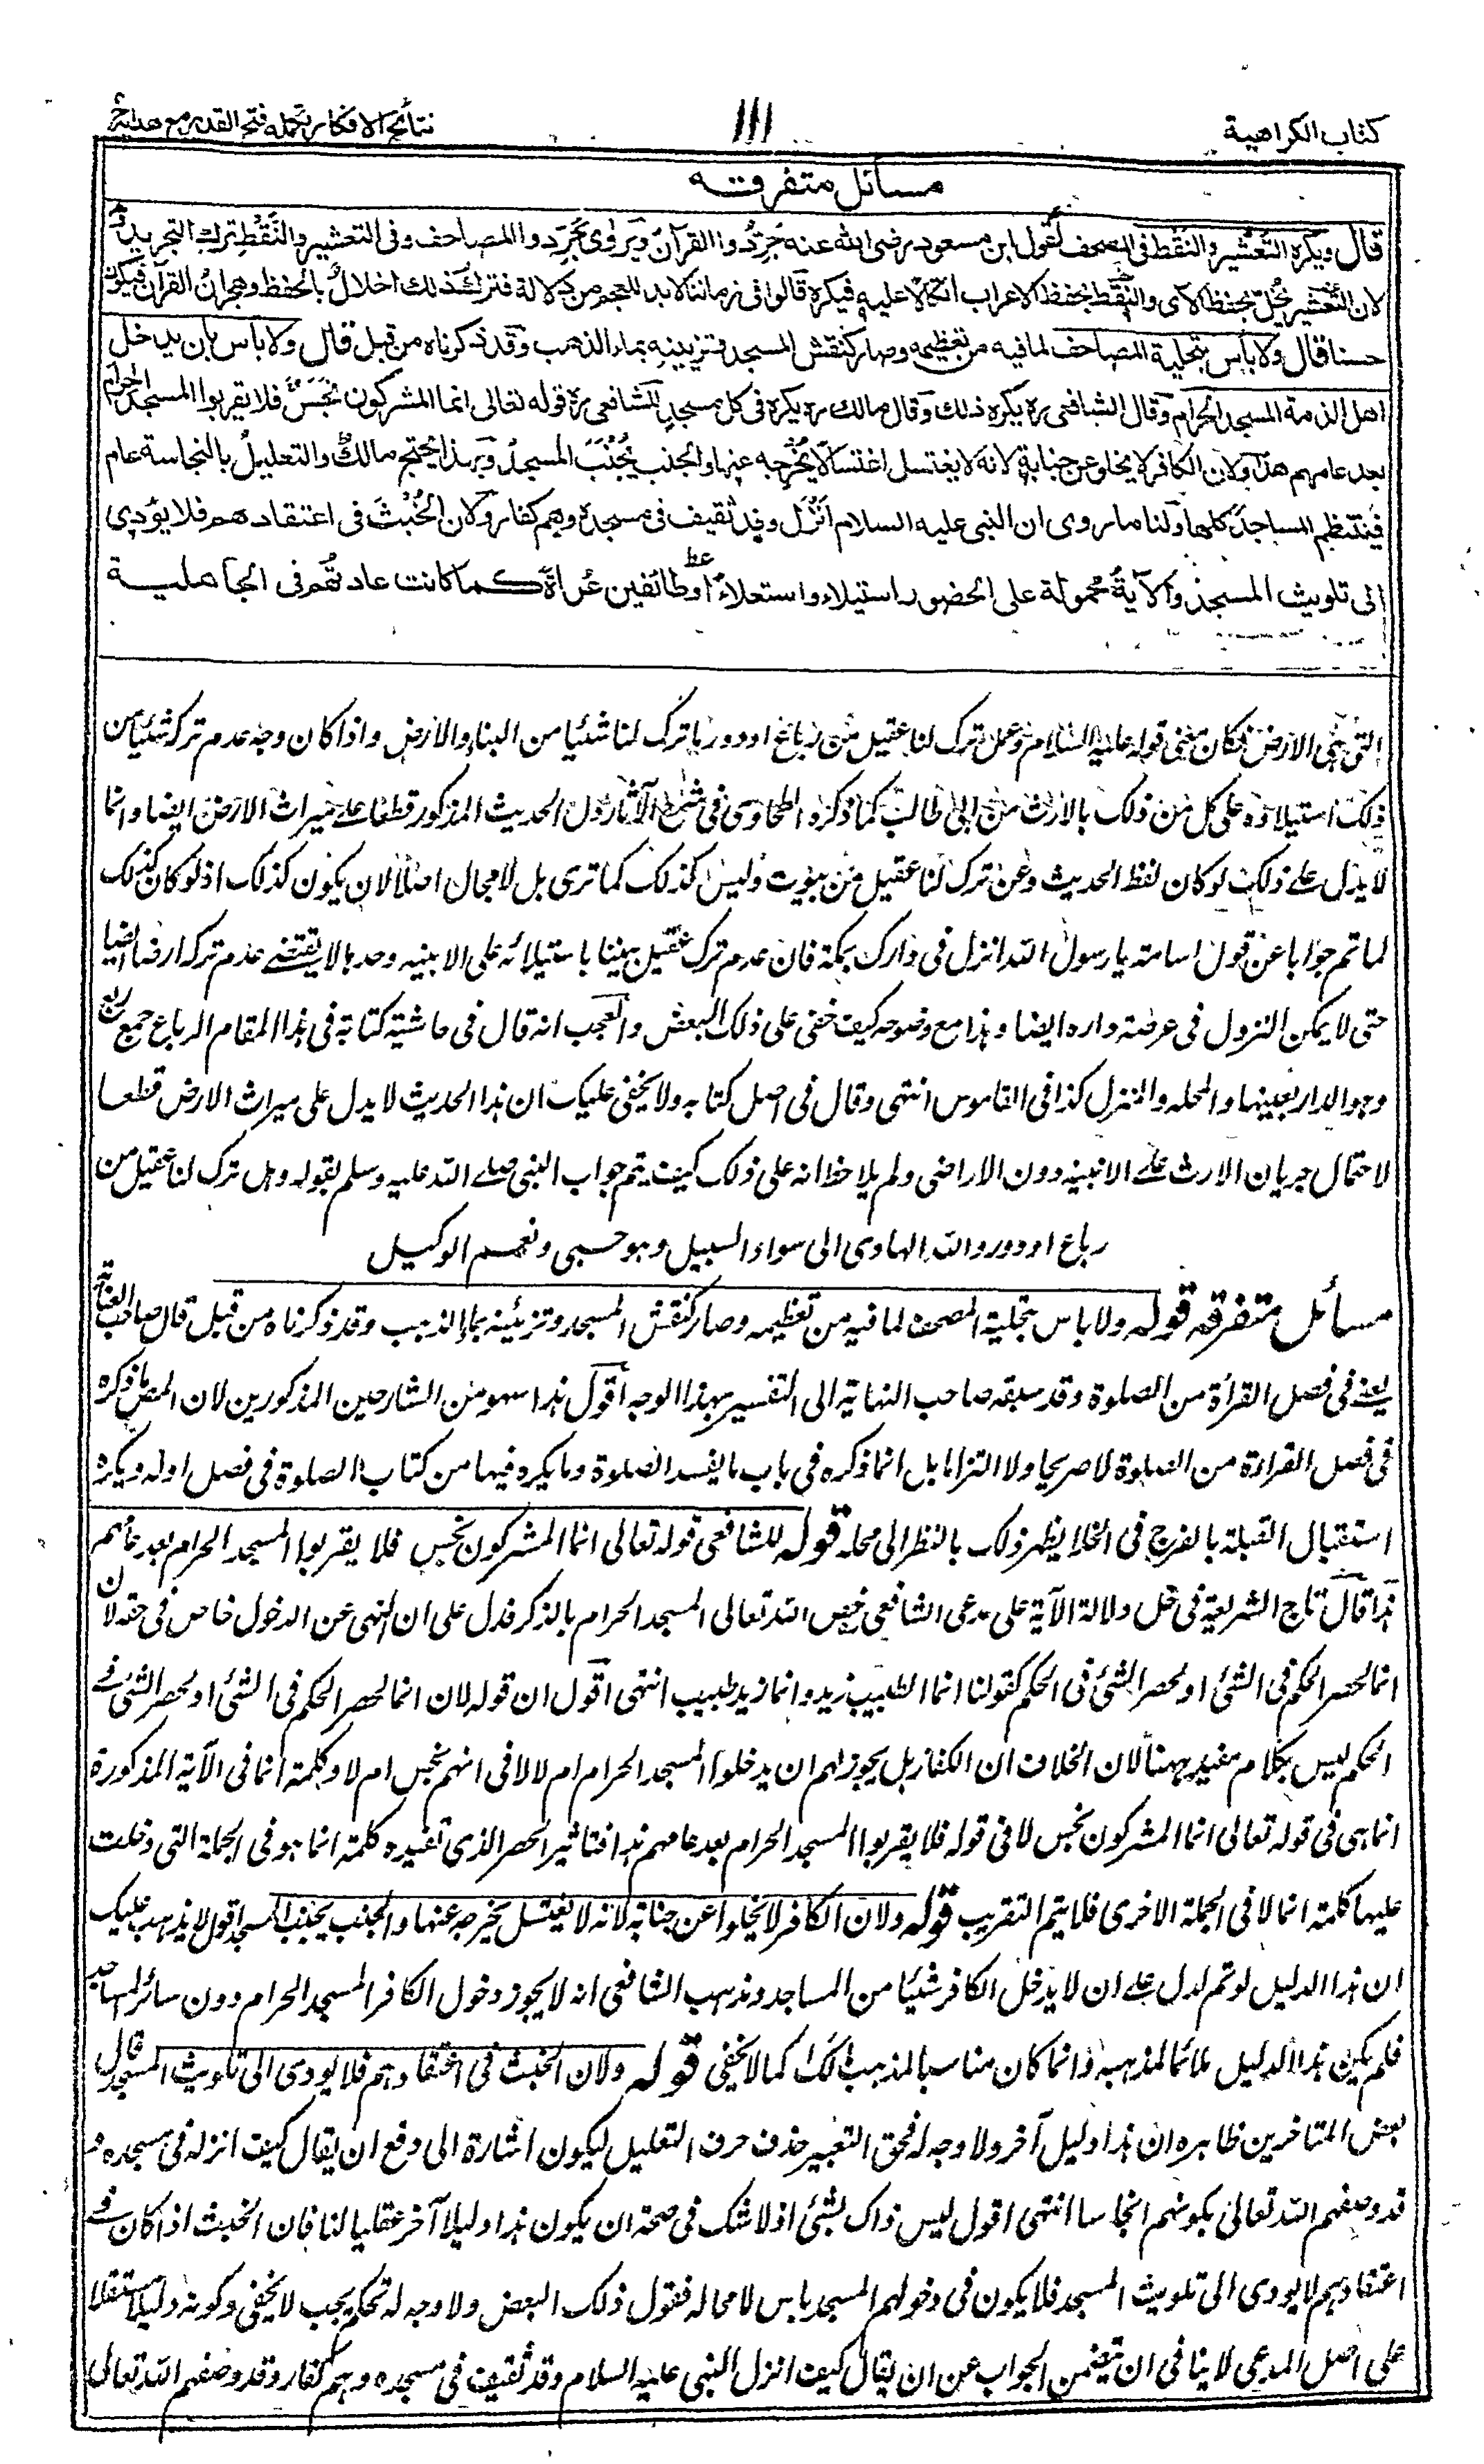 كتاب الكراهية
١١١
نتائج الافكار تكمله فتح القدير مع هدايه
مسائل متفرقه
قال ويكره التعشير والنقط فى المصحف لقول ابن مسعود رضى الله عنه جردوا القرآن ويروى جردوا المصاحف وفى التعشير والنقط ترك التجريد و
لان التعشير يخل بحفظ الآى والنقط بحفظ الاعراب اتكالا عليه فيكره قالوا فى زماننا لا بد للعجم من دلالة فترك ذلك اخلال بالحفظ وهجران القرآن فيكون
حسنا قال ولا بأس بتحلية المصاحف لما فيه من تعظيمه وصار كنقش المسجد وتزيينه بماء الذهب وقد ذكرناه من قبل قال ولا باس بان يدخل
اهل الذمة المسجد الحرام وقال الشافعى ره يكره ذلك وقال مالك ره يكره فى كل مسجد للشافعى ره قوله تعالى انما المشركون نجس فلا يقربوا المسجد الحرام
بعد عامهم هذا ولان الكافر لا يخلو عن جنابة لانه لا يغتسل اغتسالا يخرجه عنها والجنب يجنب المسجد وبهذا يحتج مالك والتعليل بالنجاسة عام
فينتظم المساجد كلها ولنا ما روى ان النبى عليه السلام انزل وفد ثقيف فى مسجده وهم كفار ولان الخبث فى اعتقادهم فلا يؤدى
الى تلويث المسجد والآية محمولة على الحضور استيلاء واستعلاء او طائفين عراة كما كانت عادتهم فى الجاهلية
التى هى الارض فكان معنى قوله عليه السلام وهل ترك لنا عقيل من رباع او دور ما ترك لنا شئيا من البناء والارض واذا كان وجه عدم ترك شئيا من
ذلك استيلاؤه على كل من ذلك بالارث من ابى طالب كما ذكره الطحاوى فى شرح الآثار دل الحديث المذكور قطعا على ميراث الارض ايضا وانما
لا يدل على ذلك لو كان لفظ الحديث وهل ترك لنا عقيل من بيوت وليس كذلك كما ترى بل لا مجال اصلا لان يكون كذلك اذ لو كان كذلك
لما تم جوابا عن قول اسامة يا رسول الله انزل فى دارك بمكة فان عدم ترك عقيل بيتا باستيلائه على الابنيه وحدها لا يقتضى عدم تركه ارضا ايضا
حتى لا يمكن النزول فى عرضة داره ايضا وهذا مع وضوحه كيف خفى على ذلك البعض والعجب انه قال فى حاشية كتابه فى هذا المقام الرباع جمع ربع
وهو الدار بعينها والمحله والمنزل كذا فى القاموس انتهى وقال فى اصل كتابه ولا يخفى عليك ان هذا الحديث لا يدل على ميراث الارض قطعا
لاحتمال جريان الارث على الابنيه دون الاراضى ولم يلاحظ انه على ذلك كيف يتم جواب النبى صلى الله عليه وسلم بقوله وهل ترك لنا عقيل من
رباع او دور والله الهادى الى سواء السبيل وهو حسبى ونعم الوكيل
مسائل متفرقه قوله ولا باس بتحلية المصحف لما فيه من تعظيمه وصار كنقش المسجد وتزئينه بماء الذهب وقد ذكرناه من قبل قال صاحب العناية
يعنى فى فصل القرأة من الصلوة وقد سبقه صاحب النهاية الى التفسير بهذا الوجه اقول هذا سهو من الشارحين المذكورين لان المص ما ذكره
فى فصل القراءة من الصلوة لا صريحا ولا التزاما بل انما ذكره فى باب ما يفسد الصلوة وما يكره فيها من كتاب الصلوة فى فصل اوله ويكره
استقبال القبلة بالفرج فى الخلا يظهر ذلك بالنظر الى محله قوله للشافعى قوله تعالى انما المشركون نجس فلا يقربوا المسجد الحرام بعد عامهم
هذا قال تاج الشريعة فى حل دلالة الآية على مدعى الشافعى خص الله تعالى المسجد الحرام بالذكر فدل على ان النهى عن الدخول خاص فى حقه لان
انما لحصر الحكم فى الشئ او لحصر الشئ فى الحكم كقولنا انما الطبيب زيد وانما زيد طبيب انتهى اقول ان قوله لان انما لحصر الحكم فى الشئ او لحصر الشئ فى
الحكم ليس بكلام مفيد ههنا لان الخلاف ان الكفار هل يجوز لهم ان يدخلوا المسجد الحرام ام لا لا فى انهم نجس ام لا وكلمة انما فى الآية المذكورة
انما هى فى قوله تعالى انما المشركون نجس لا فى قوله فلا يقربوا المسجد الحرام بعد عامهم هذا فتاثير الحصر الذى تفيده كلمة انما هو فى الجملة التى دخلت
عليها كلمة انما لا فى الجملة الاخرى فلا يتم التقريب قوله ولان الكافر لا يخلوا عن جنابة لانه لا يغتسل يخرجه عنها والجنب يجنب المسجد اقول لا يذهب عليك
ان هذا الدليل لو تم لدل على ان لا يدخل الكافر شئيا من المساجد ومذهب الشافعى انه لا يجوز دخول الكافر المسجد الحرام دون سائر المساجد
فلم يكن هذا الدليل ملائما لمذهبه وانما كان مناسبا لمذهب مالك كما لا يخفى قوله ولان الخبث فى اعتقادهم فلا يودى الى تلويث المسجد قال
بعض المتاخرين ظاهره ان هذا دليل آخر ولا وجه له فحق التعبير حذف حرف التعليل ليكون اشارة الى دفع ان يقال كيف انزله فى مسجده و
قد وصفهم الله تعالى بكونهم انجاسا انتهى اقول ليس ذاك بشئ اذ لا شك فى صحة ان يكون هذا دليلا آخر عقليا لنا فان الخبث اذا كان فى
اعتقادهم لا يودى الى تلويث المسجد فلا يكون فى دخولهم المسجد باس لا محاله فقول ذلك البعض ولا وجه له تحكم يجب لا يخفى وكونه دليلا مستقلا
على اصل المدعى لا ينافى ان يتضمن الجواب عن ان يقال كيف انزل النبى عليه السلام وفد ثقيف فى مسجده وهم كفار وقد وصفهم الله تعالى